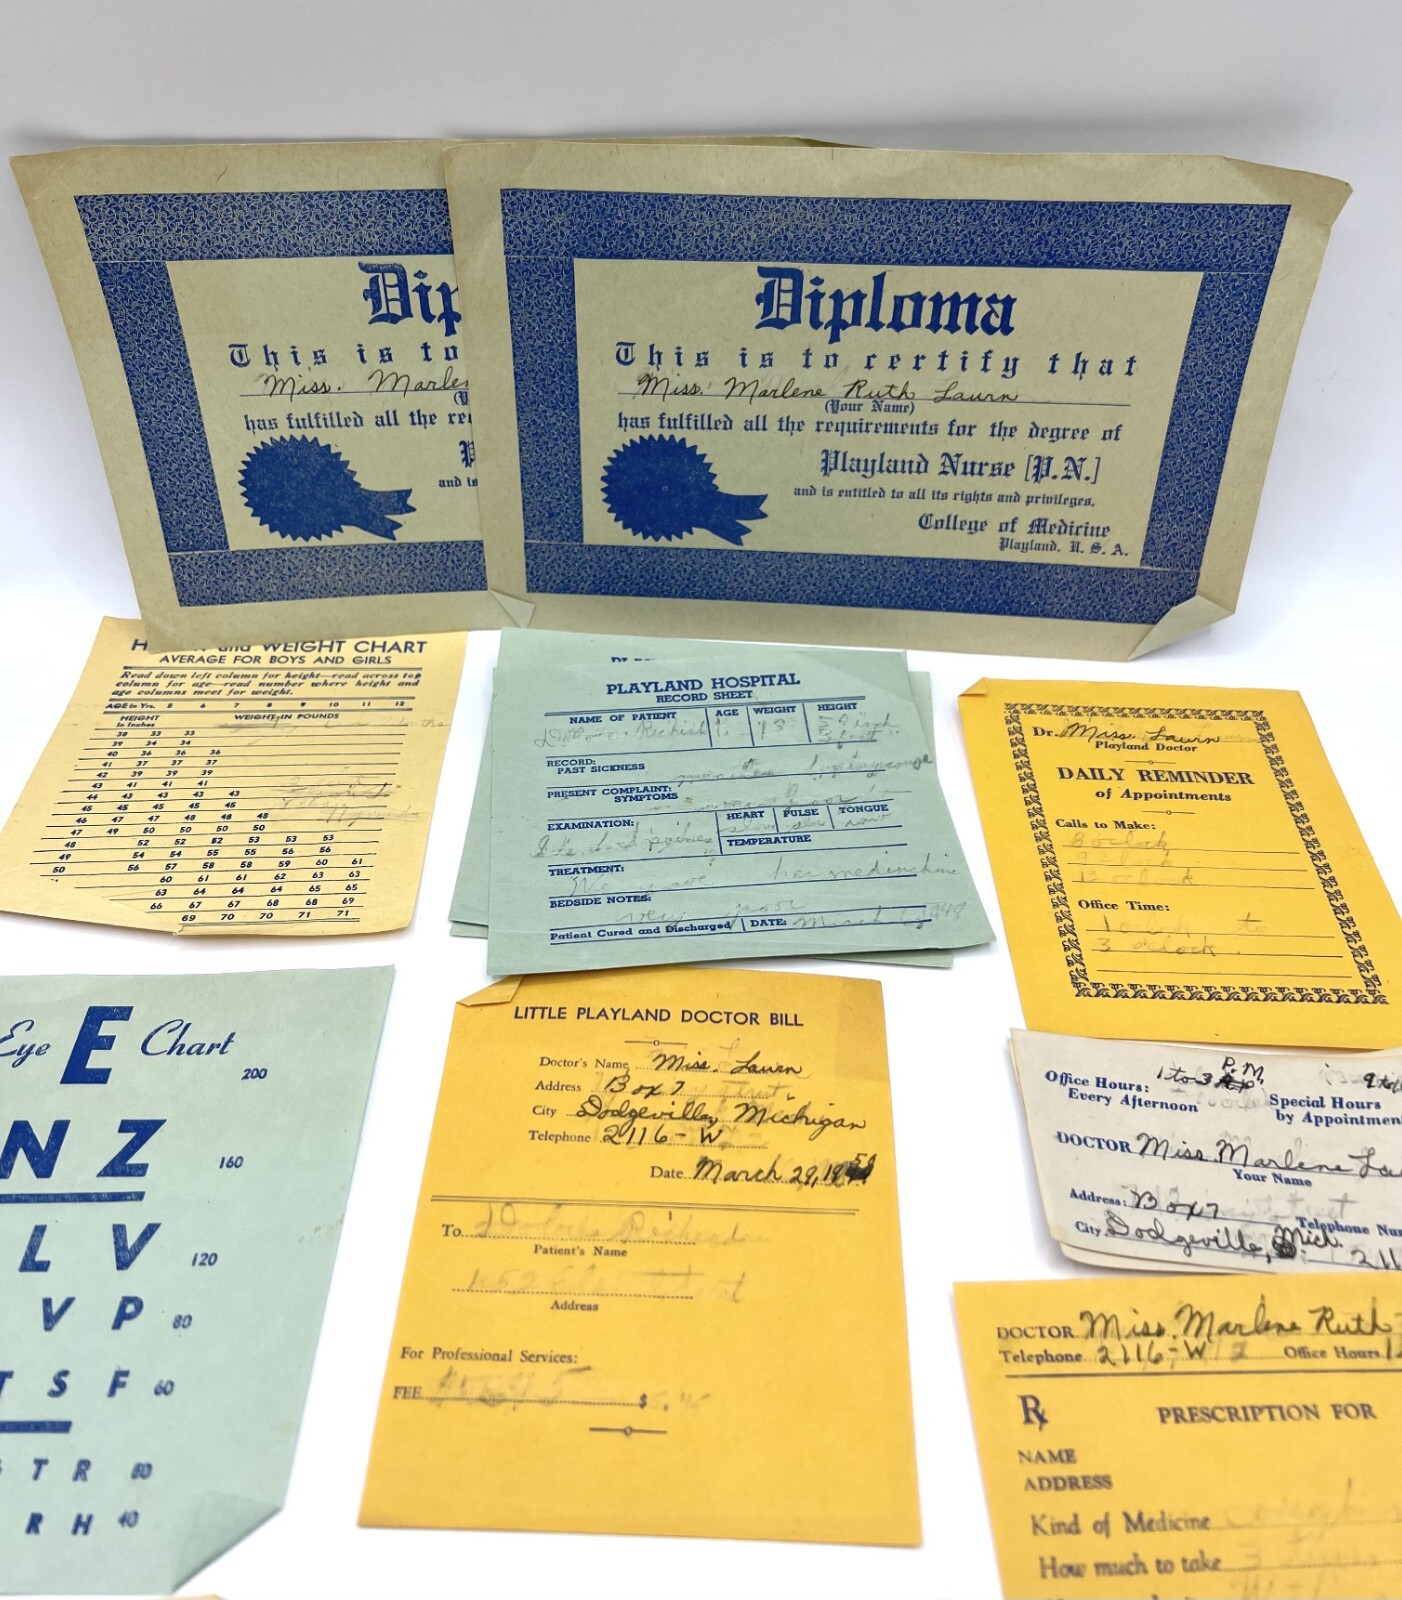 Dip
This is to
Miss. Marle
has fulfilled all the re
and is
Diploma
This is to certify that
Miss. Marlene Ruth Laurn
(Your Name)
has fulfilled all the requirements for the degree of
Playland Nurse [P.N.]
and is entitled to all its rights and privileges.
College of Medicine
Playland, U. S. A.
and WEIGHT CHART
AVERAGE FOR BOYS AND GIRLS
Read down left column for height—read across top
column for age—read number where height and
age columns meet for weight.
AGE in Yrs. 5 6 7 8 9 10 11 12
HEIGHT WEIGHT IN POUNDS
in Inches
38 33 33
39 34 34
40 36 36 36
41 37 37 37
42 39 39 39
43 41 41 41
44 43 43 43 43
45 45 45 45 45
46 47 47 48 48 48
47 49 50 50 50 50
48 52 52 52 53 53 53
49 54 54 55 55 56 56
50 56 57 58 58 59 60 61
60 61 61 62 63 63
63 64 64 64 65 65
66 67 67 68 68 69
69 70 70 71 71
PLAYLAND HOSPITAL
RECORD SHEET
NAME OF PATIENT AGE WEIGHT HEIGHT
RECORD:
PAST SICKNESS
PRESENT COMPLAINT:
SYMPTOMS
EXAMINATION: HEART PULSE TONGUE
TEMPERATURE
TREATMENT:
We gave her medinchine
BEDSIDE NOTES:
very poor
Patient Cured and Discharged DATE: March 6, 1948
Dr. Miss. Laurn
Playland Doctor
DAILY REMINDER
of Appointments
Calls to Make:
8 oclock
9 oclock
12 oclock
Office Time:
1 oclock to
3 oclock.
Eye E Chart
200
N Z 160
L V 120
V P 80
T S F 60
T R 50
R H 40
LITTLE PLAYLAND DOCTOR BILL
Doctor's Name Miss. Laurn
Address Box 7
City Dodgeville, Michigan
Telephone 2116-W
Date March 29, 19
To
Patient's Name
Address
For Professional Services:
FEE $
Office Hours: 1 to 3 P.M.
Every Afternoon
Special Hours
by Appointmen
DOCTOR Miss. Marlene La
Your Name
Address: Box 7
Telephone Nu
City Dodgeville, Mich. 211
DOCTOR Miss. Marlene Ruth
Telephone 2116-W Office Hours 1
Rx PRESCRIPTION FOR
NAME
ADDRESS
Kind of Medicine
How much to take 3